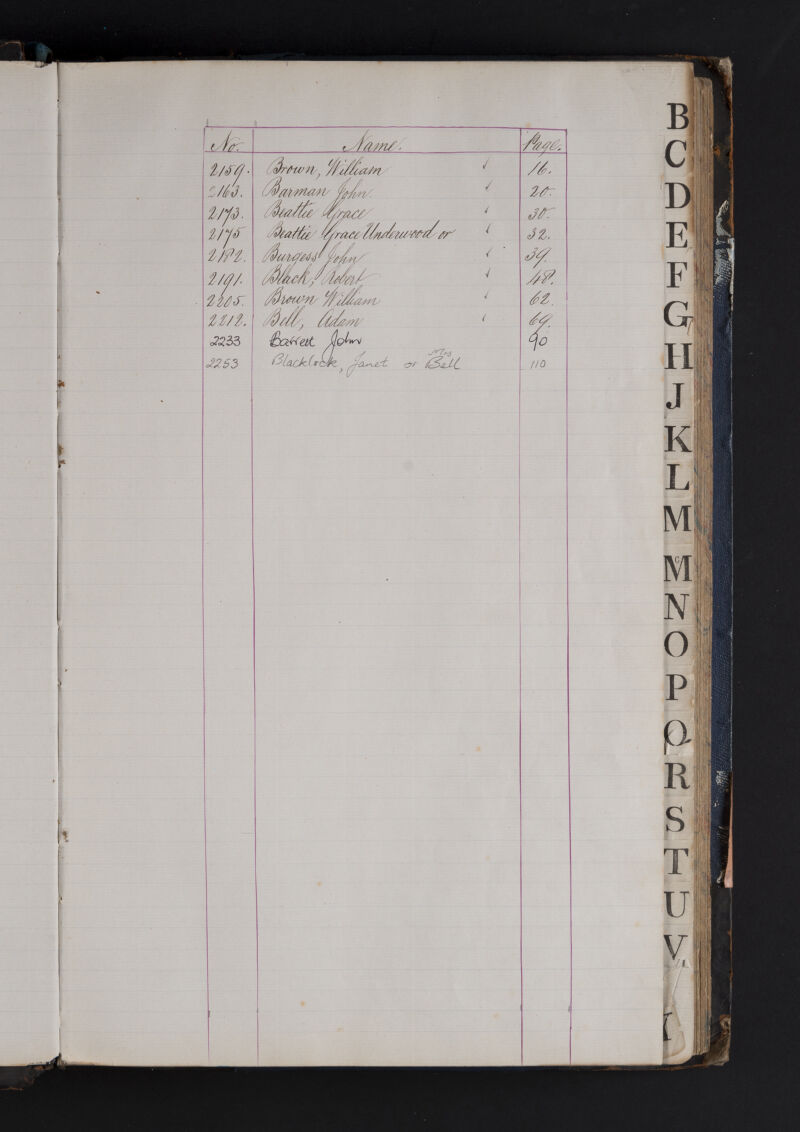 No. Name. Page.
2159. Brown, William ✓ 16.
2163. Barman John. ✓ 20.
2173. Beattie Grace ✓ 30.
2175 Beattie Grace Underwood or ✓ 32.
2182. Burgess John ✓ 39.
2191. Black, Robert ✓ 48.
2205. Brown William ✓ 62.
2212. Bell, Adam ✓ 69.
2233 Barrett John 90
2253 Blacklock, Janet or Mrs Bell 110
B
C
D
E
F
G
H
J
K
L
M
Mc
N
O
P
Q
R
S
T
U
V